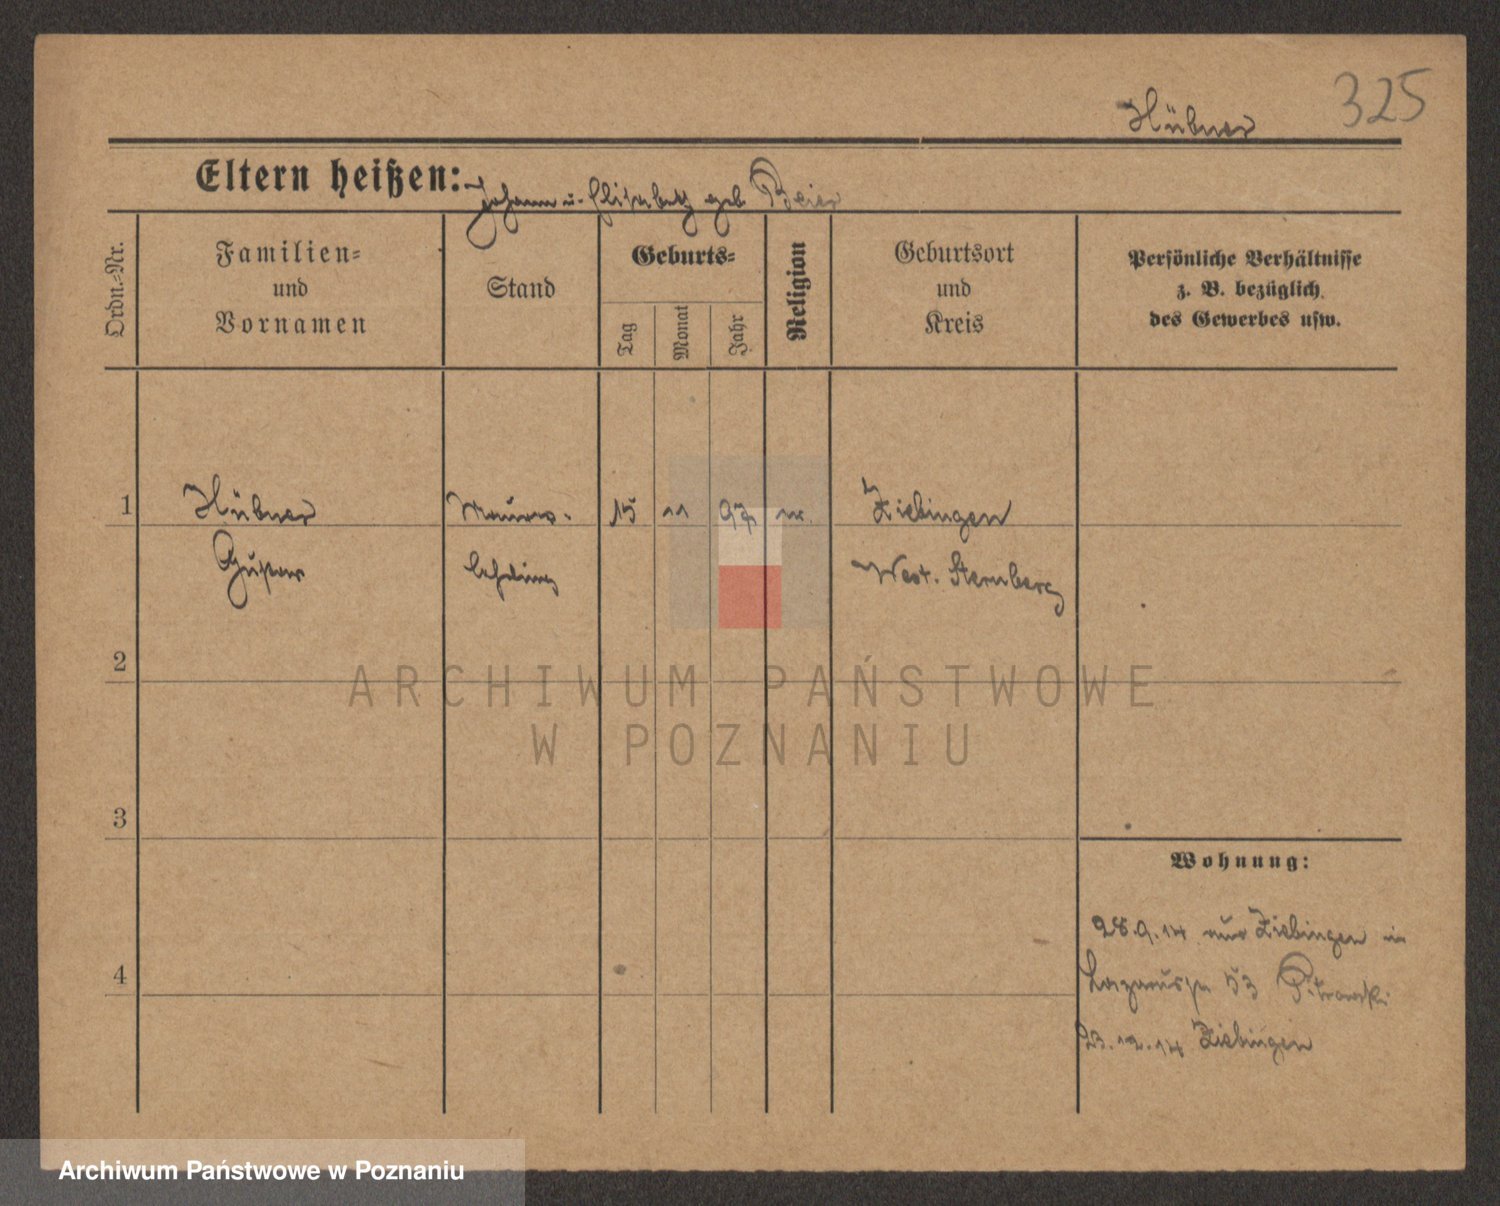 325
Hübner
Eltern heißen: Johann u. Elisabeth geb. Beier
Ordn.-Nr.
Familien-
und
Vornamen
Stand
Geburts-
Tag
Monat
Jahr
Religion
Geburtsort
und
Kreis
Persönliche Verhältnisse
z. B. bezüglich
des Gewerbes usw.
1
Hübner
Gustav
Maurer-
lehrling
15
11
97
Ziebingen
West. Sternberg
2
3
4
Wohnung:
28.9.14 aus Ziebingen in
Lazarusstr 53
23.12.14 Ziebingen
ARCHIWUM PAŃSTWOWE
W POZNANIU
Archiwum Państwowe w Poznaniu